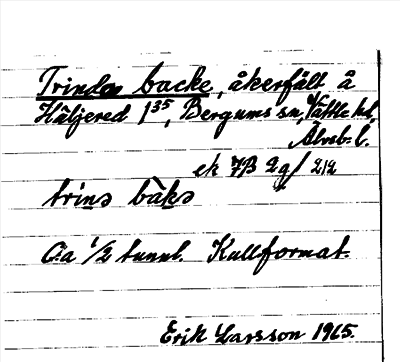 Trindas backe, åkerfält å
Häljered 1³⁵, Bergums sn, Vättle hd,
Älvsb. l.
ek 7B 2g/ 212
trinə bàkə
Ca 1/2 tunnl. Kullformat.
Erik Larsson 1965.